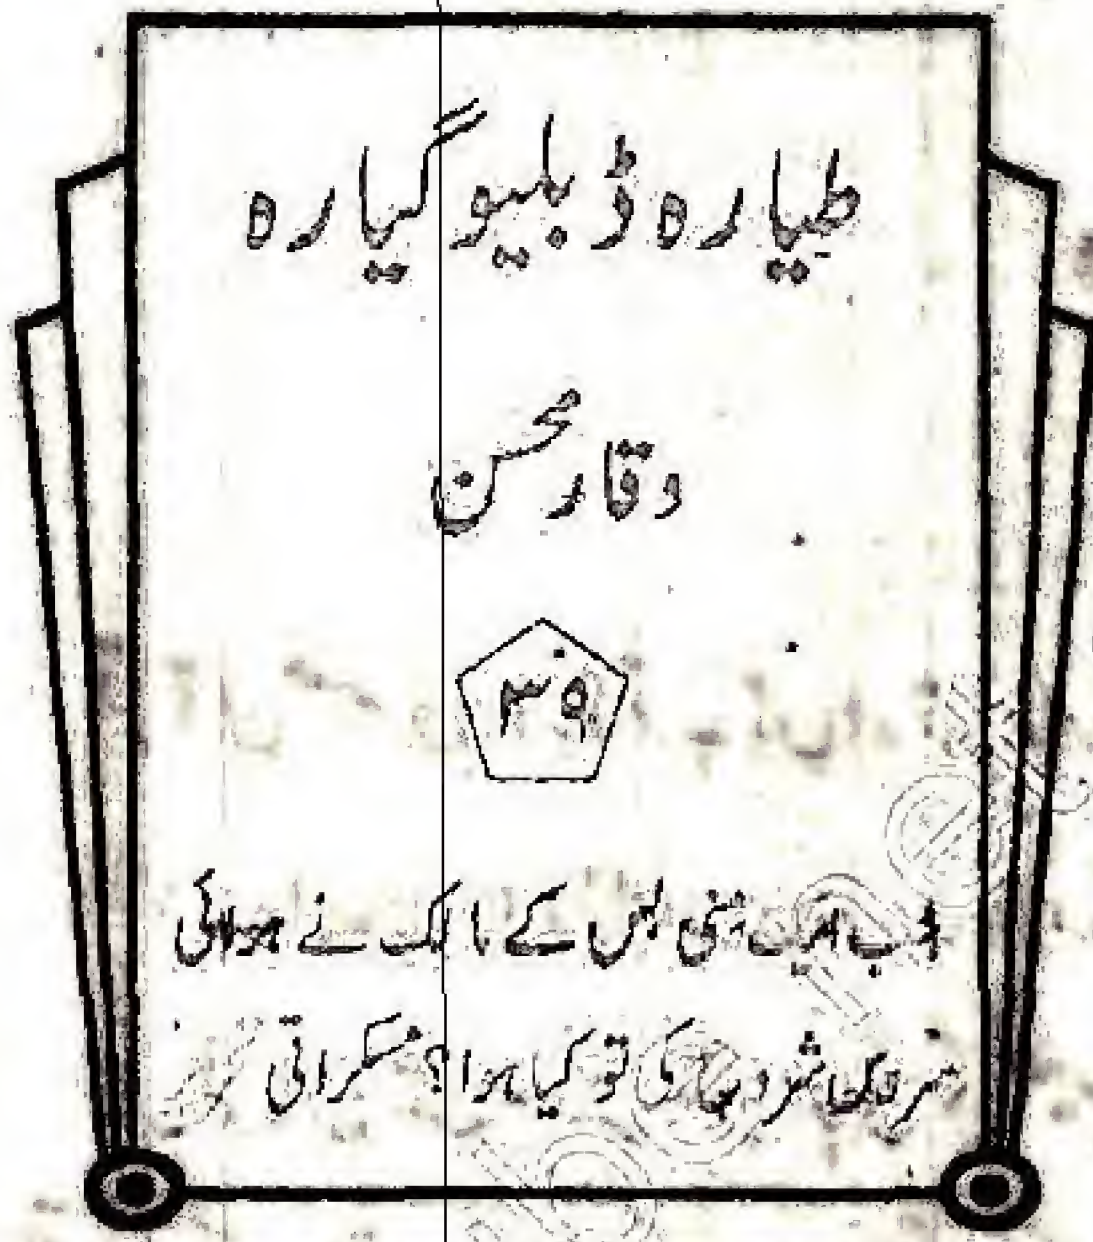 طیارہ ڈبلیو گیارہ
وقار محسن
۳۹
جب منی بس کے مالک نے ہوائی
سروس شروع کی تو کیا ہوا؟ مسکراتی